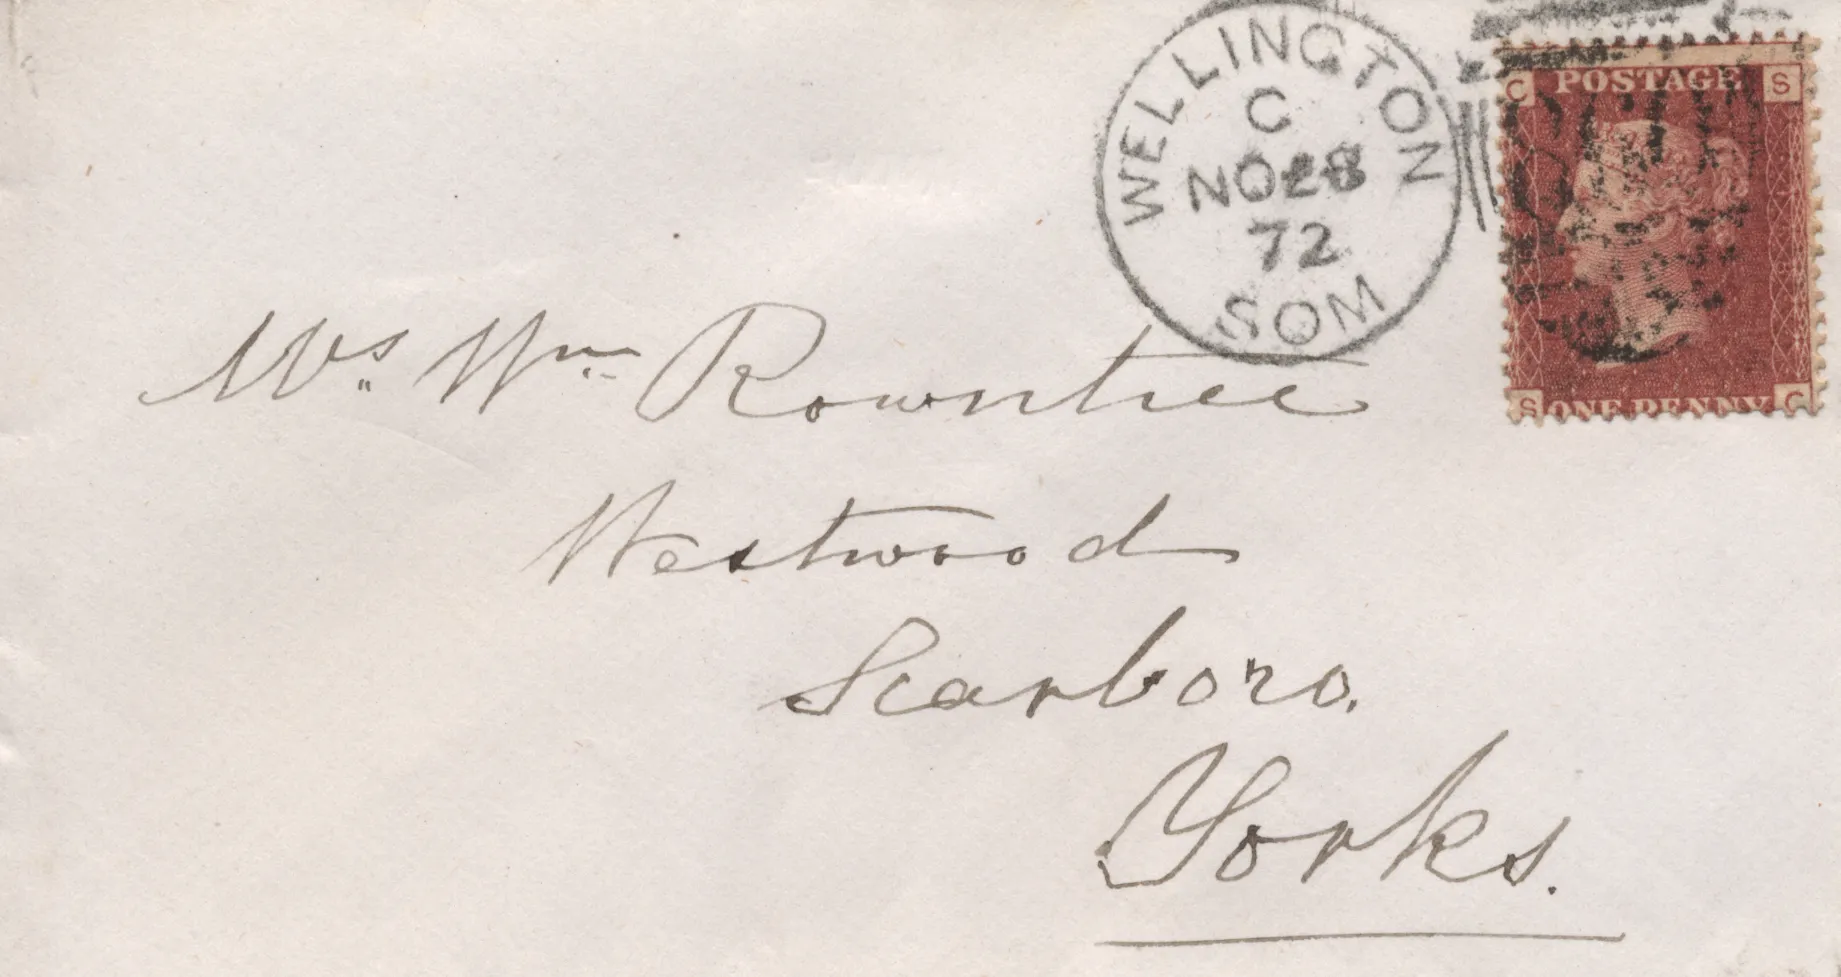 WELLINGTON
C
NO 28
72
SOM
C POSTAGE S
S ONE PENNY C
Mrs. Wm. Rowntree
Westwood
Scarboro.
Yorks.